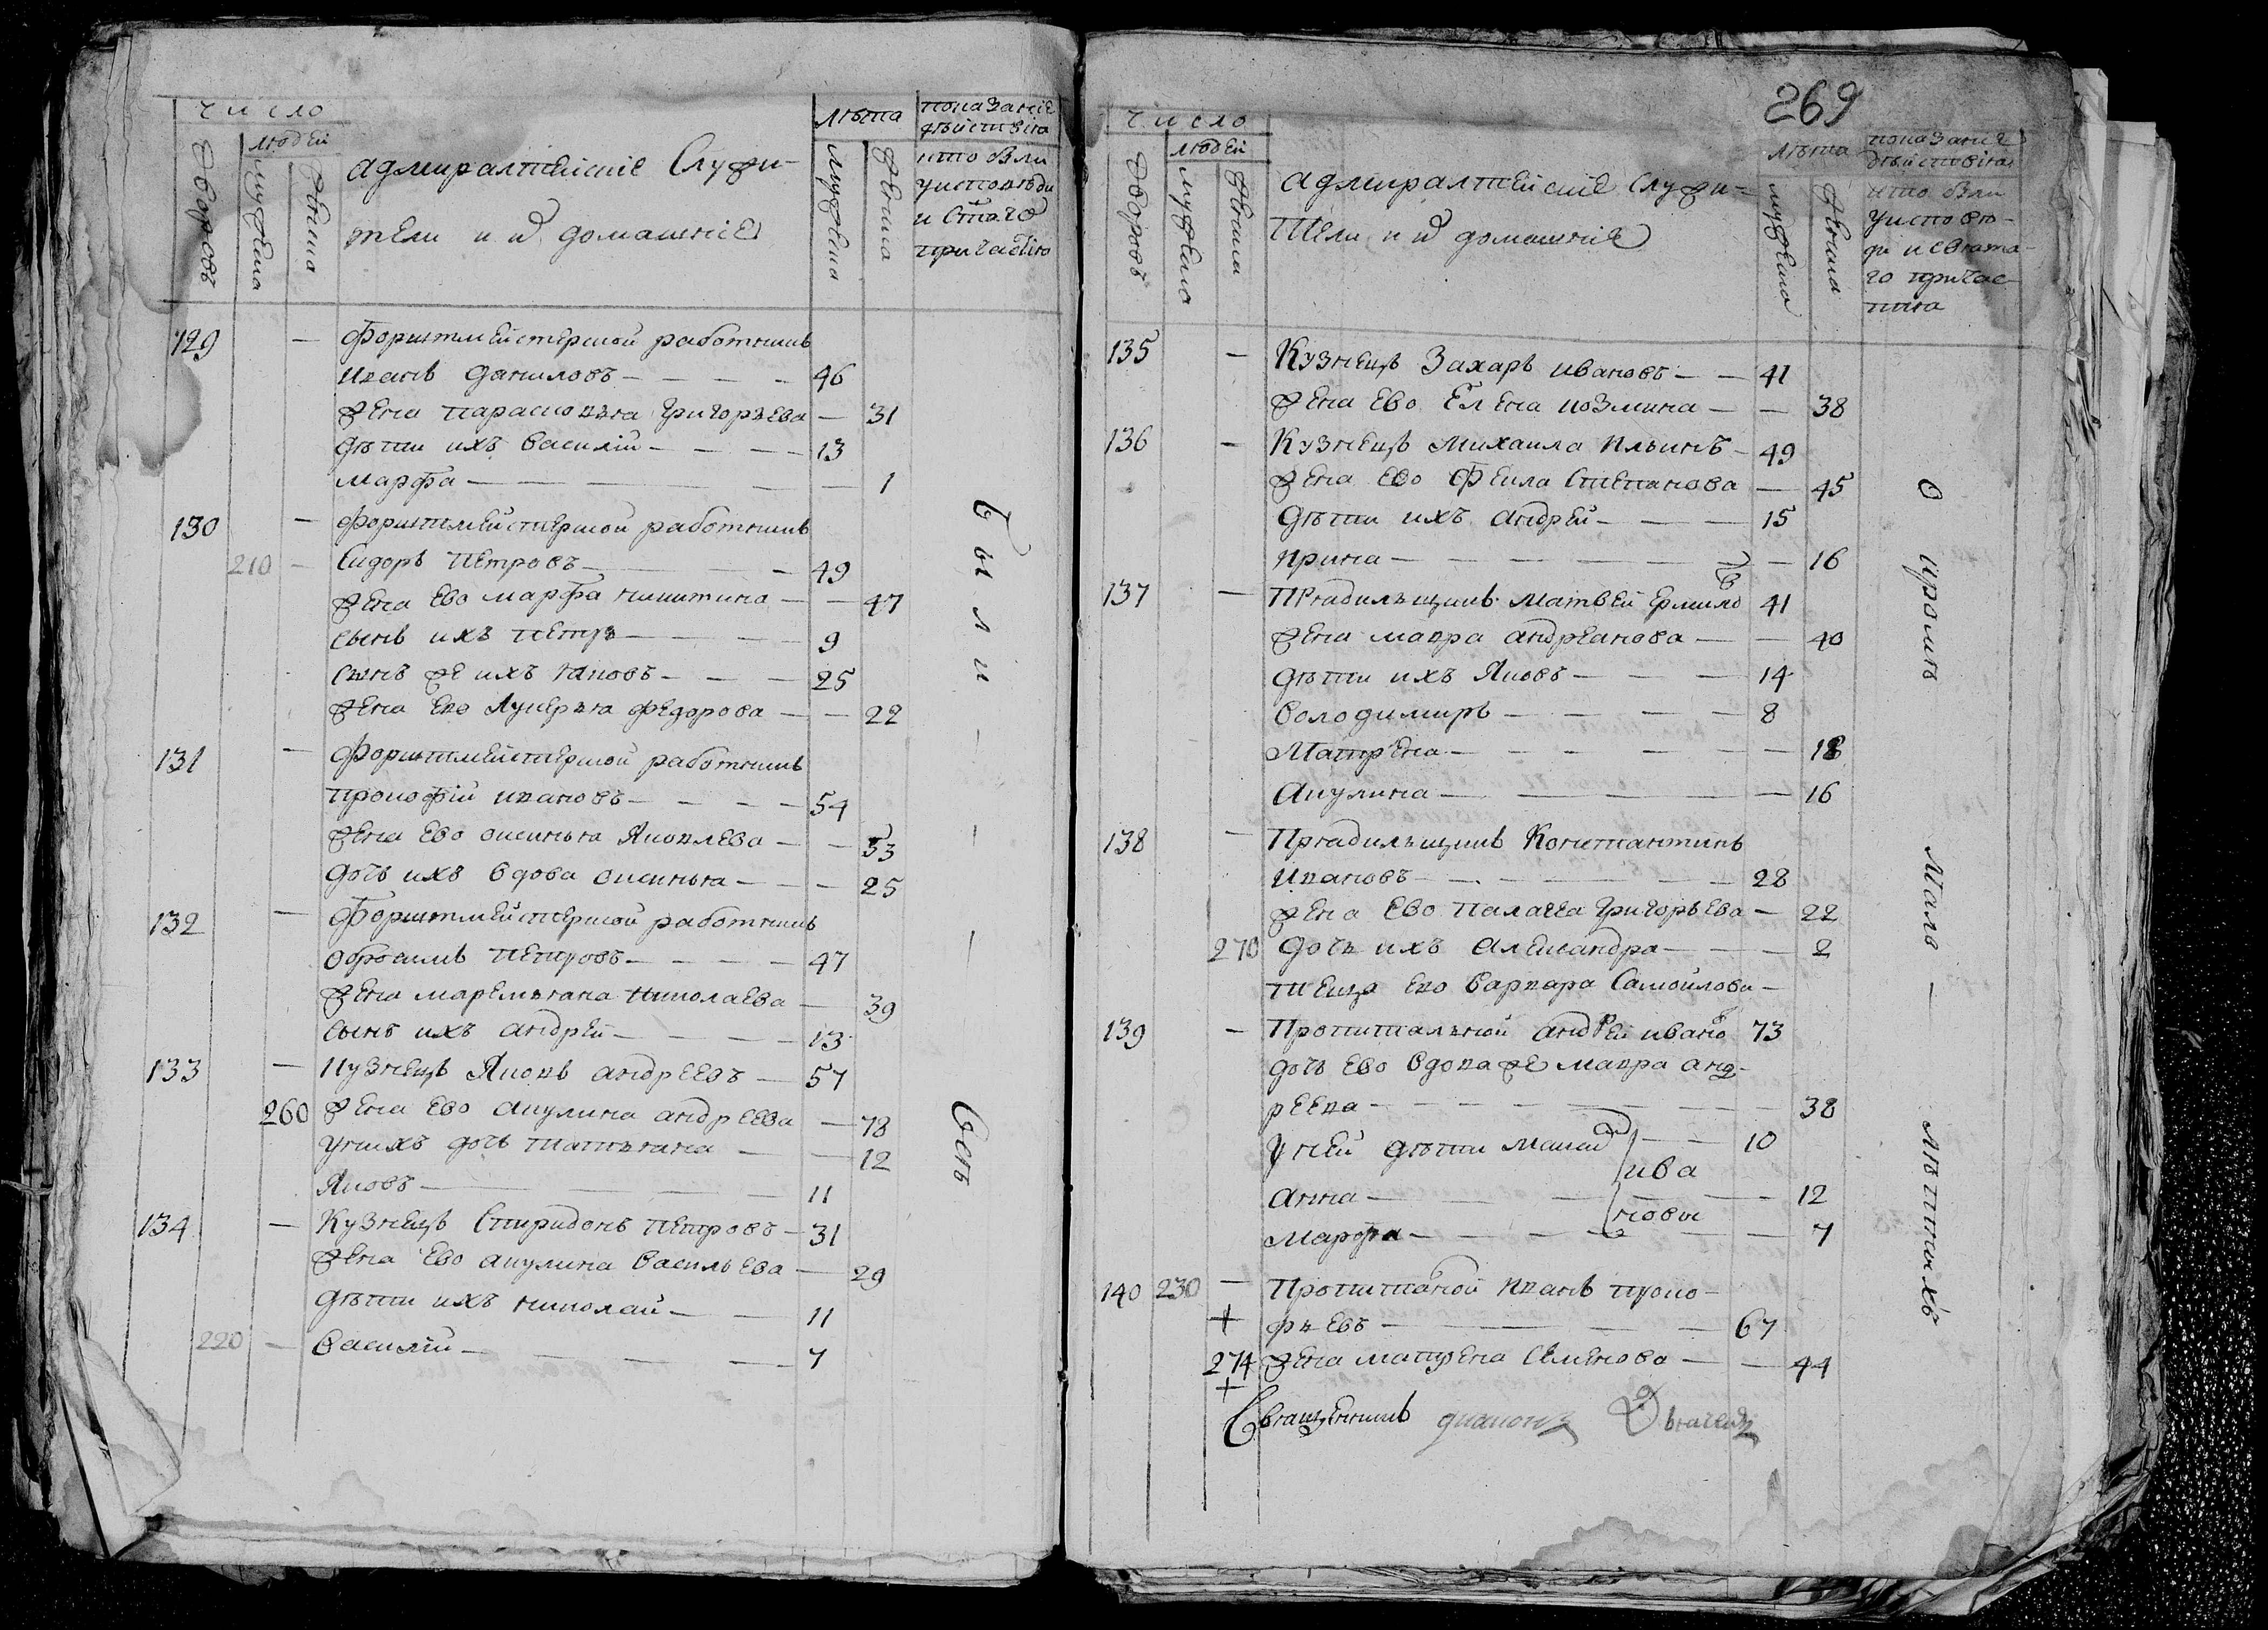 число
людей
дворовъ
мужеска
женска
адмиралтейскіе служи-
тели и и домашніе
лѣта
мужеска
женска
показаніе
дѣйствія
кто былъ
у исповѣди
и стаго
причастія
129 — Форштмейстерской работникъ
иванъ даниловъ — 46
жена парасковья григорьева — 31
дѣти ихъ василій — 13
марфа — 1
130 — форштмейстерской работникъ
210 — сидоръ петровъ — 49
жена ево марфа никитина — 47
сынъ ихъ петръ — 9
сынъ же ихъ яковъ — 25
жена ево лукерья федорова — 22
131 — форштмейстерской работникъ
прокофій ивановъ — 54
жена ево оксинья яковлева — 53
дочь ихъ вдова оксинья — 25
132 — форштмейстерской работникъ
петровъ — 47
жена маремьяна николаева — 39
сынъ ихъ андрей — 13
133 — кузнецъ яковъ андреевъ — 57
260 жена ево акулина андреева — 78
у нихъ дочь татьяна — 12
яковъ — 11
134 — кузнецъ спиридонъ петровъ — 31
жена ево акулина васильева — 29
дѣти ихъ николай — 11
220 — василій — 7
были — — — весь
269
число
людей
дворовъ
мужеска
женска
адмиралтейскіе служи-
тели и и домашніе
лѣта
мужеска
женска
показаніе
дѣйствія
кто былъ
у исповѣ-
ди и свята-
го причас-
тия
135 — Кузнецъ захаръ ивановъ — 41
жена ево елена козмина — 38
136 — Кузнецъ михаила ильинъ — 49
жена ево фекла степанова — 45
дѣти ихъ андрей — 15
ирина — 16
137 — прядильщикъ матвей ермило в 41
жена мавра андреанова — 40
дѣти ихъ яковъ — 14
володимиръ — 8
матрена — 18
акулина — 16
138 — прядильщикъ константинъ
ивановъ — 28
жена ево палагея григорьева — 22
270 дочь ихъ александра — 2
теща ево варвара самойлова —
139 — пропитальной андрей ивано в 73
дочь ево вдова же мавра анд-
реева — 38
у ней дѣти — 10
ива
анна — 12
новы
марфа — 7
140 230 — пропитаной иванъ проко-
+ фьевъ — 67
274 жена матрена семенова — 44
+
о кромѣ малолѣтныхъ
священникъ диаконъ